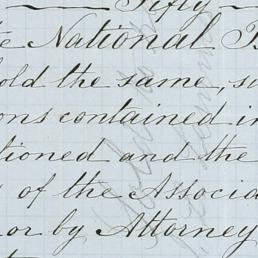 Fifty
National
the same, su
ons contained in
tioned and the
of the Associa
or by Attorney